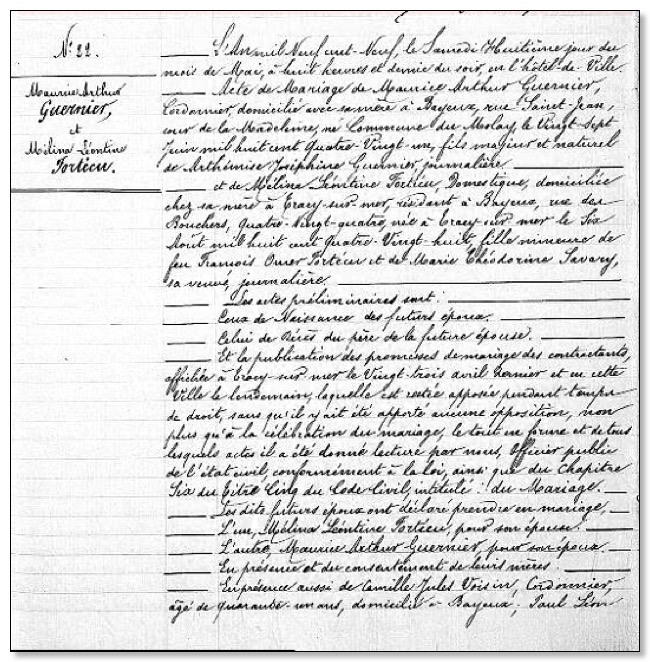 N° 22.
Maurice Arthur
Guernier,
et
Mélina Léontine
Fortécu.
L'An mil Neuf cent-Neuf, le Samedi Huitième jour du
mois de Mai, à huit heures et demie du soir, en l'hôtel-de-Ville
Acte de Mariage de Maurice Arthur Guernier,
Cordonnier, domicilié avec sa mère à Bayeux, rue Saint-Jean,
cour de la Madeleine, né Commune du Molay, le Vingt-Sept
Juin mil huit cent Quatre-Vingt-un, fils majeur et naturel
de Arthémise Joséphine Guernier, journalière.
et de Mélina Léontine Fortécu, Domestique, domiciliée
chez sa mère à Tracy-sur-mer, résidant à Bayeux, rue des
Bouchers, Quatre-Vingt-quatre, née à Tracy sur mer le Six
Août mil huit cent Quatre-Vingt-huit, fille mineure de
feu François Omer Fortécu et de Marie Théodorine Savary,
sa veuve, journalière.
Les actes préliminaires sont :
Ceux de Naissance des futurs époux.
Celui de Décès du père de la future épouse.
Et la publication des promesses de mariage des contractants,
affichée à Tracy-sur-mer le Vingt-trois avril dernier et en cette
Ville le lendemain, laquelle est restée apposée pendant temps
de droit, sans qu'il y ait été apporté aucune opposition, non
plus qu'à la célébration du mariage, le tout en forme et de tous
lesquels actes il a été donné lecture par nous, Officier public
de l'état civil, conformément à la loi, ainsi que du chapitre
Six du Titre Cinq du Code Civil, intitulé : du Mariage.
Les dits futurs époux ont déclaré prendre en mariage,
L'un, Mélina Léontine Fortécu, pour son épouse.
L'autre, Maurice Arthur Guernier, pour son époux.
En présence et du consentement de leurs mères.
En présence aussi de Camille Jules Voisin, Cordonnier,
âgé de quarante-un ans, domicilié à Bayeux ; Paul Léon